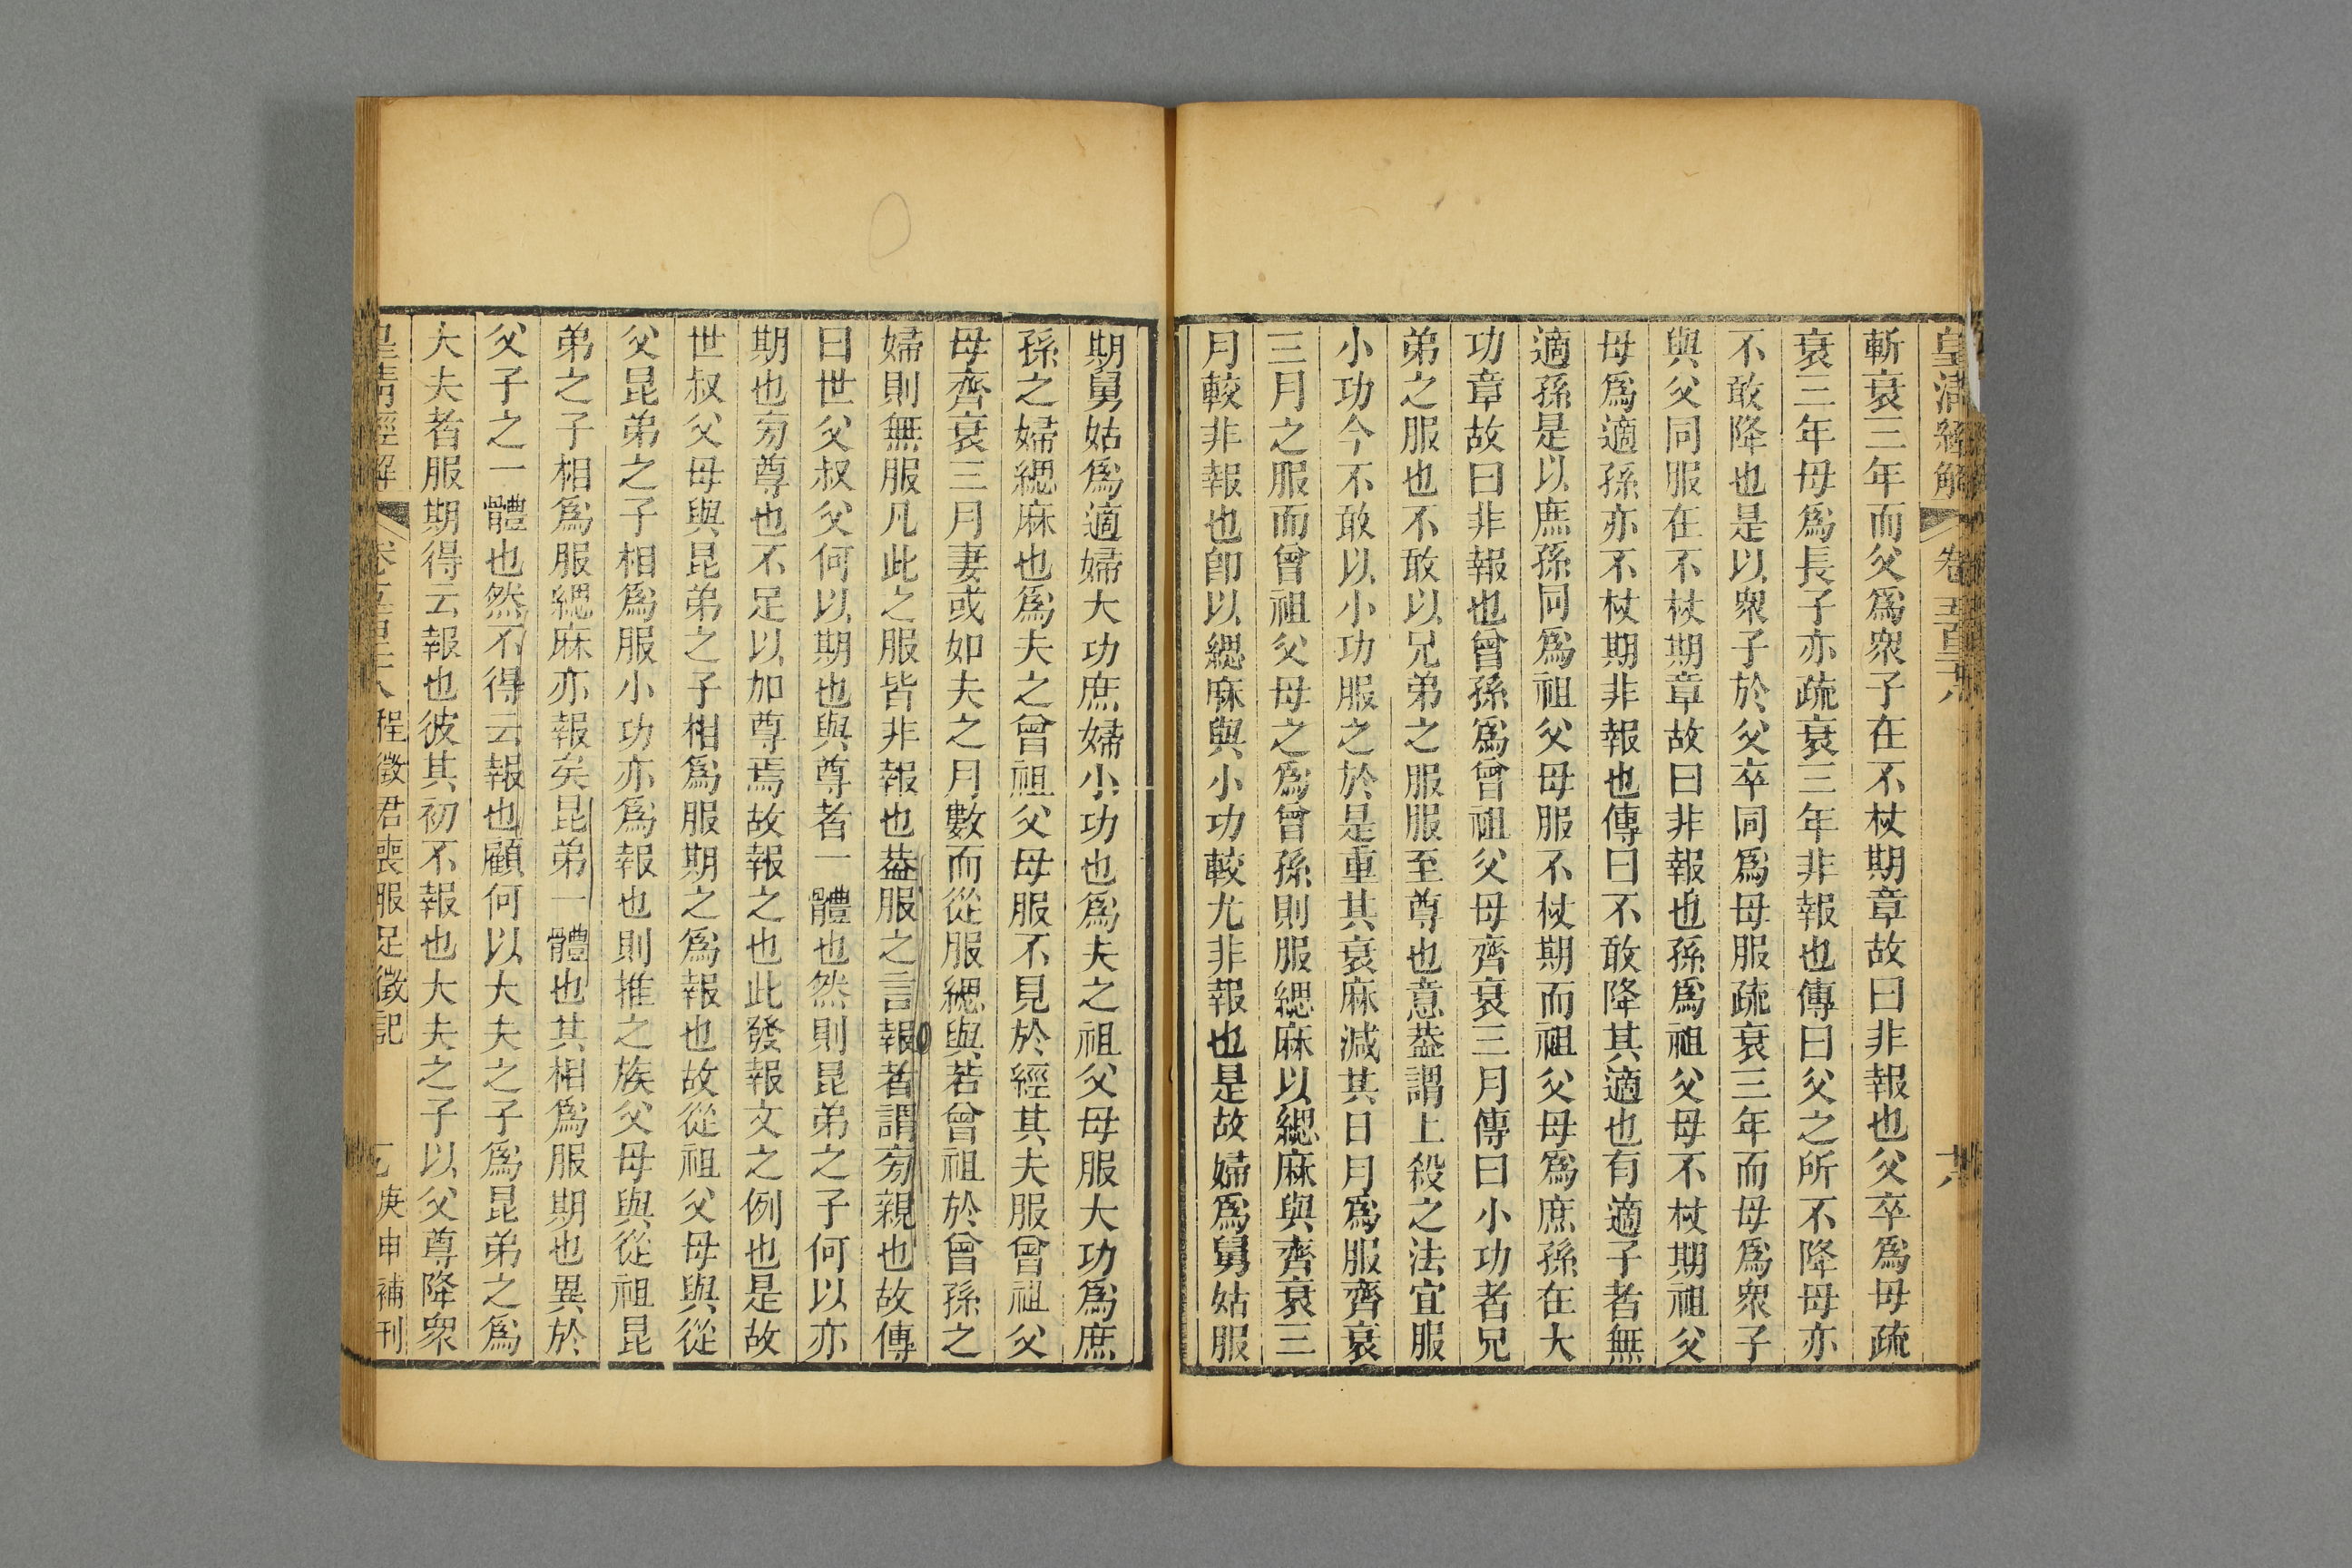 皇清經解 卷五百二十八 十八
斬衰三年而父爲衆子在不杖期章故曰非報也父卒爲母疏
衰三年母爲長子亦疏衰三年非報也傳曰父之所不降母亦
不敢降也是以衆子於父卒同爲母服疏衰三年而母爲衆子
與父同服在不杖期章故曰非報也孫爲祖父母不杖期祖父
母爲適孫亦不杖期非報也傳曰不敢降其適也有適子者無
適孫是以庶孫同爲祖父母服不杖期而祖父母爲庶孫在大
功章故曰非報也曾孫爲曾祖父母齊衰三月傳曰小功者兄
弟之服也不敢以兄弟之服服至尊也意葢謂上殺之法宜服
小功今不敢以小功服之於是重其衰麻減其日月爲服齊衰
三月之服而曾祖父母之爲曾孫則服緦麻以緦麻與齊衰三
月較非報也卽以緦麻與小功較尤非報也是故婦爲舅姑服
期舅姑爲適婦大功庶婦小功也爲夫之祖父母服大功爲庶
孫之婦緦麻也爲夫之曾祖父母服不見於經其夫服曾祖父
母齊衰三月妻或如夫之月數而從服緦與若曾祖於曾孫之
婦則無服凡此之服皆非報也葢服之言報者謂旁親也故傳
曰世父叔父何以期也與尊者一體也然則昆弟之子何以亦
期也旁尊也不足以加尊焉故報之也此發報文之例也是故
世叔父母與昆弟之子相爲服期之爲報也故從祖父母與從
父昆弟之子相爲服小功亦爲報也則推之族父母與從祖昆
弟之子相爲服緦麻亦報矣昆弟一體也其相爲服期也異於
父子之一體也然不得云報也顧何以大夫之子爲昆弟之爲
大夫者服期得云報也彼其初不報也大夫之子以父尊降衆
皇清經解 程徵君喪服足徵記 庚申補刊